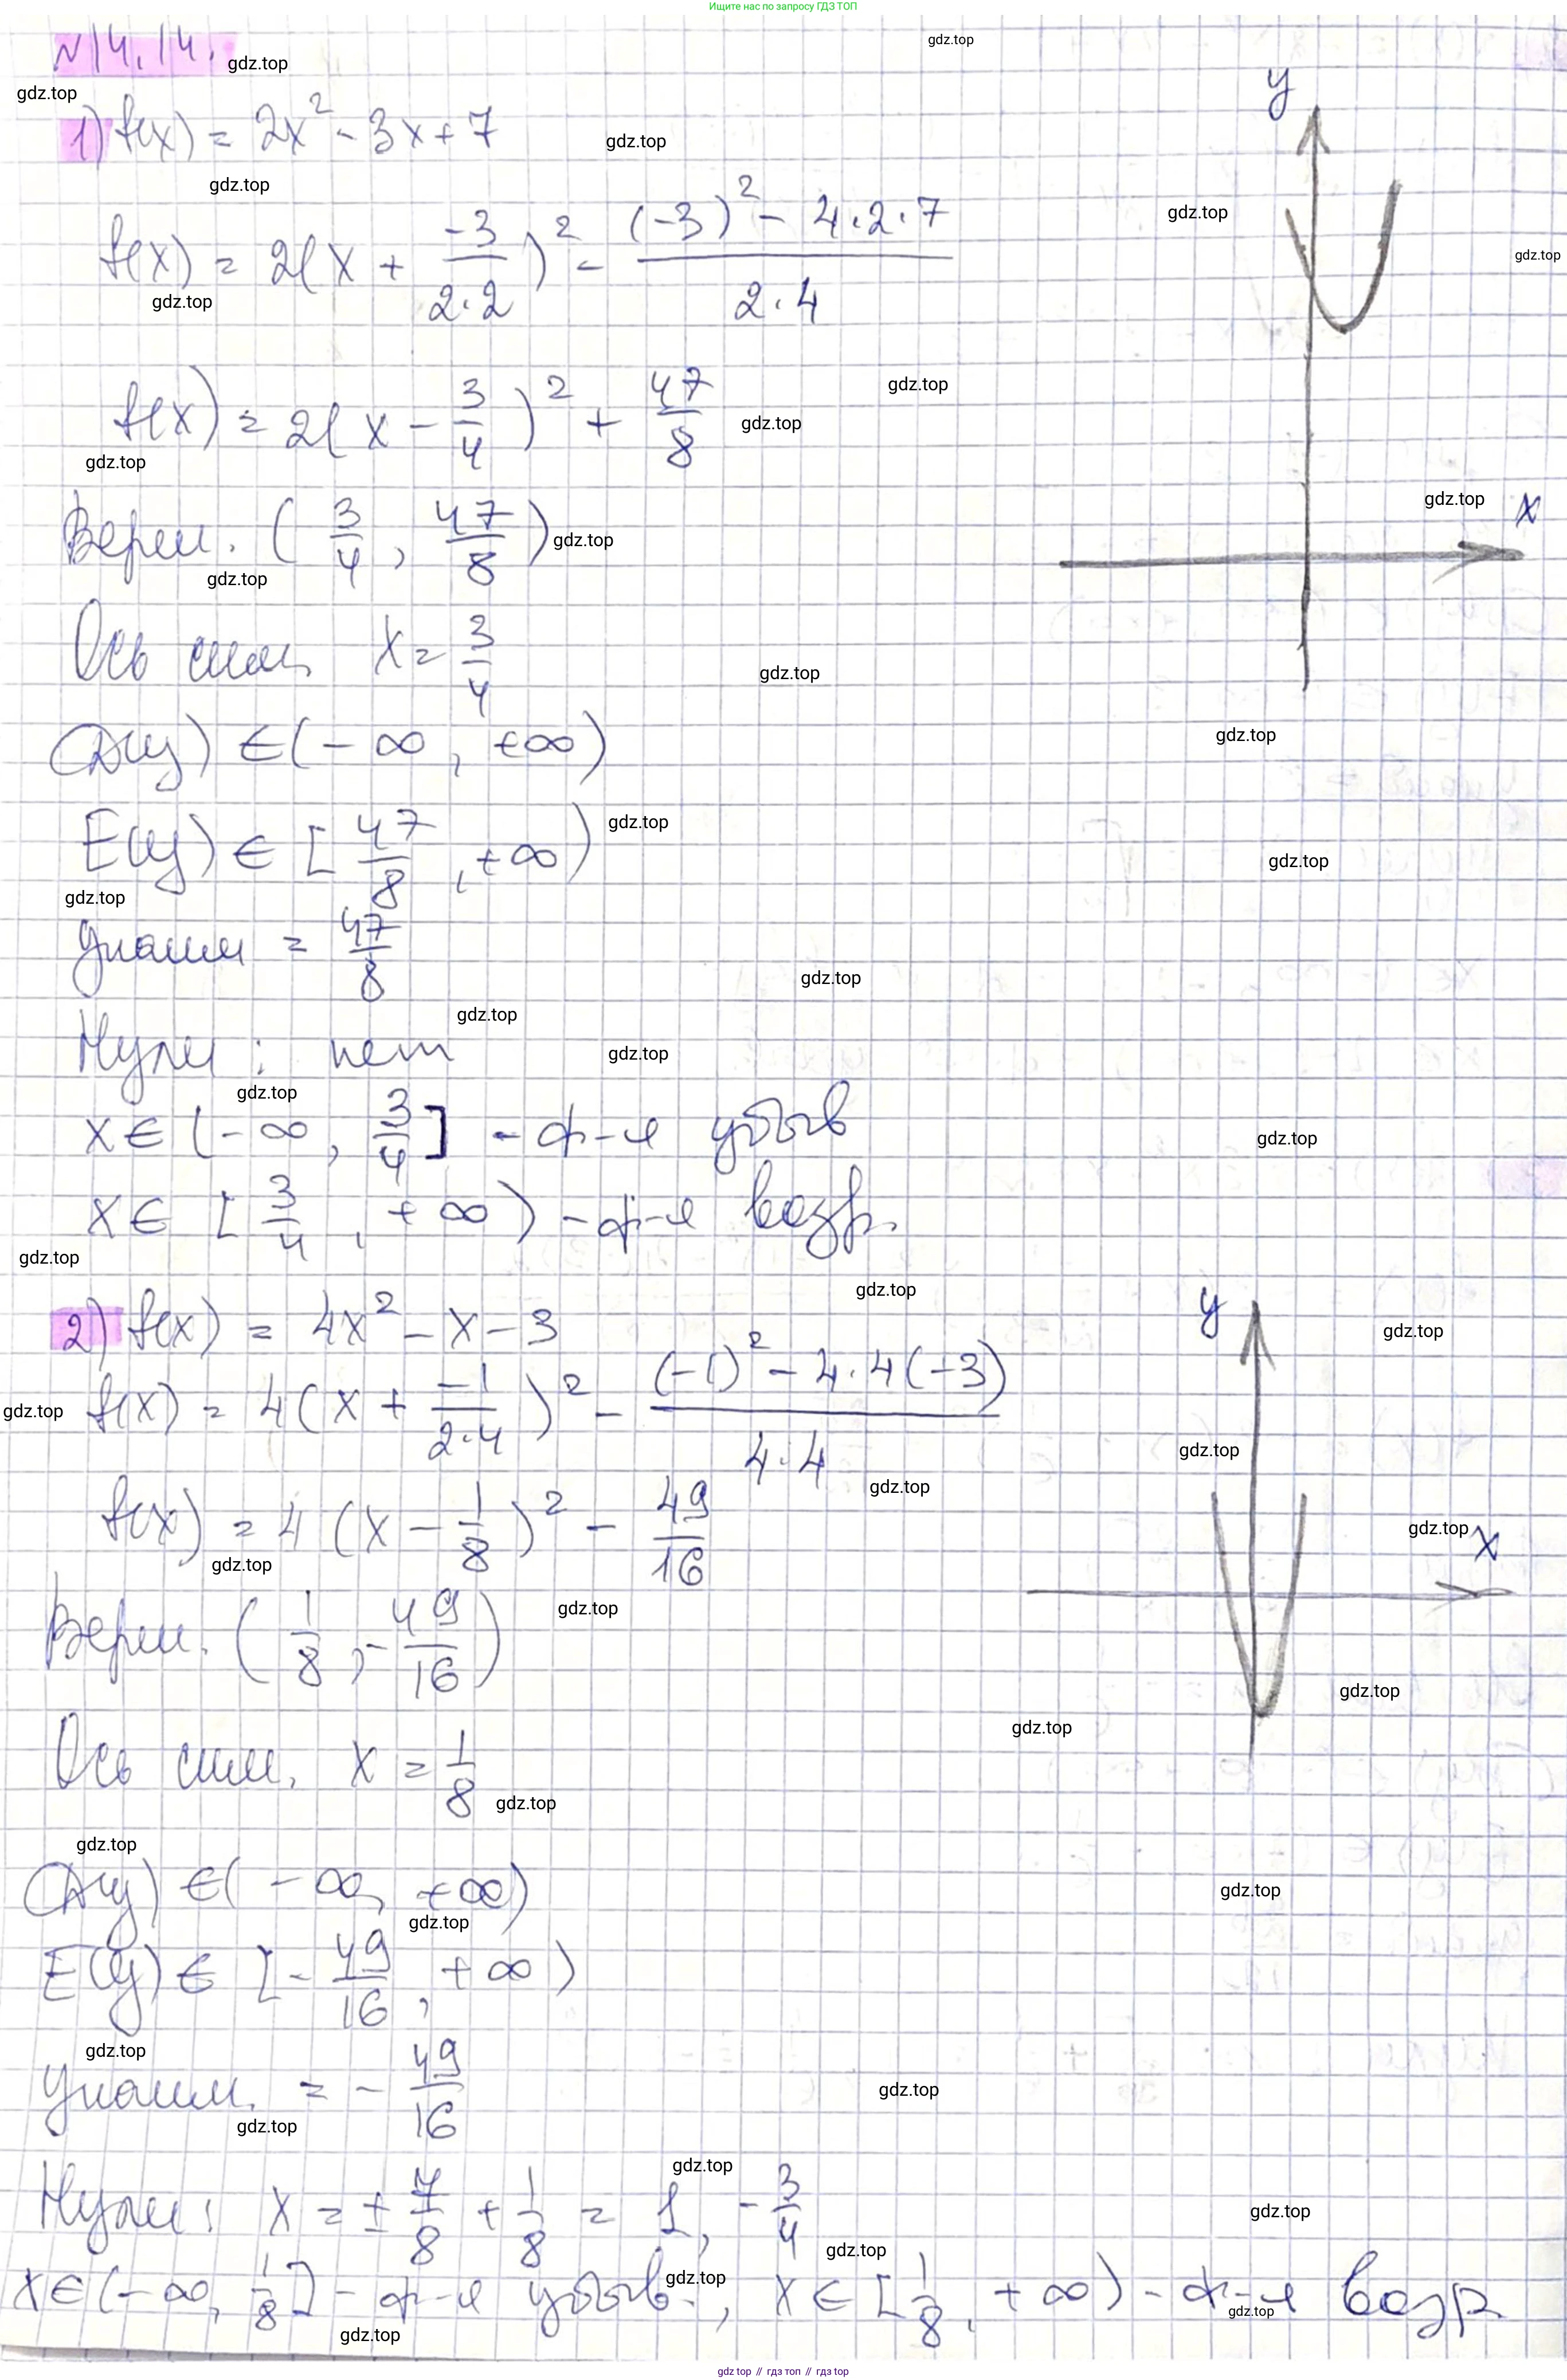 Ищите нас по запросу ГДЗ ТОП
N14.14.
1) f(x) = 2x² - 3x + 7
f(x) = 2(x + -3/2·2)² - (-3)² - 4·2·7 / 2·4
f(x) = 2(x - 3/4)² + 47/8
Верш. (3/4, 47/8)
Ось симм. x = 3/4
D(y) ∈ (-∞, +∞)
E(y) ∈ [47/8, +∞)
Унаим = 47/8
Нули: нет
x ∈ (-∞, 3/4] - ф-я убыв
x ∈ [3/4, +∞) - ф-я возр.
y
x
2) f(x) = 4x² - x - 3
f(x) = 4(x + -1/2·4)² - (-1)² - 4·4(-3) / 4·4
f(x) = 4(x - 1/8)² - 49/16
Верш. (1/8, -49/16)
Ось сим. x = 1/8
D(y) ∈ (-∞, +∞)
E(y) ∈ [-49/16, +∞)
Унаим. = -49/16
Нули: x = ± 7/8 + 1/8 = 1, -3/4
x ∈ (-∞, 1/8] - ф-я убыв., x ∈ [1/8, +∞) - ф-я возр.
y
x
gdz.top // гдз топ // гдз.top